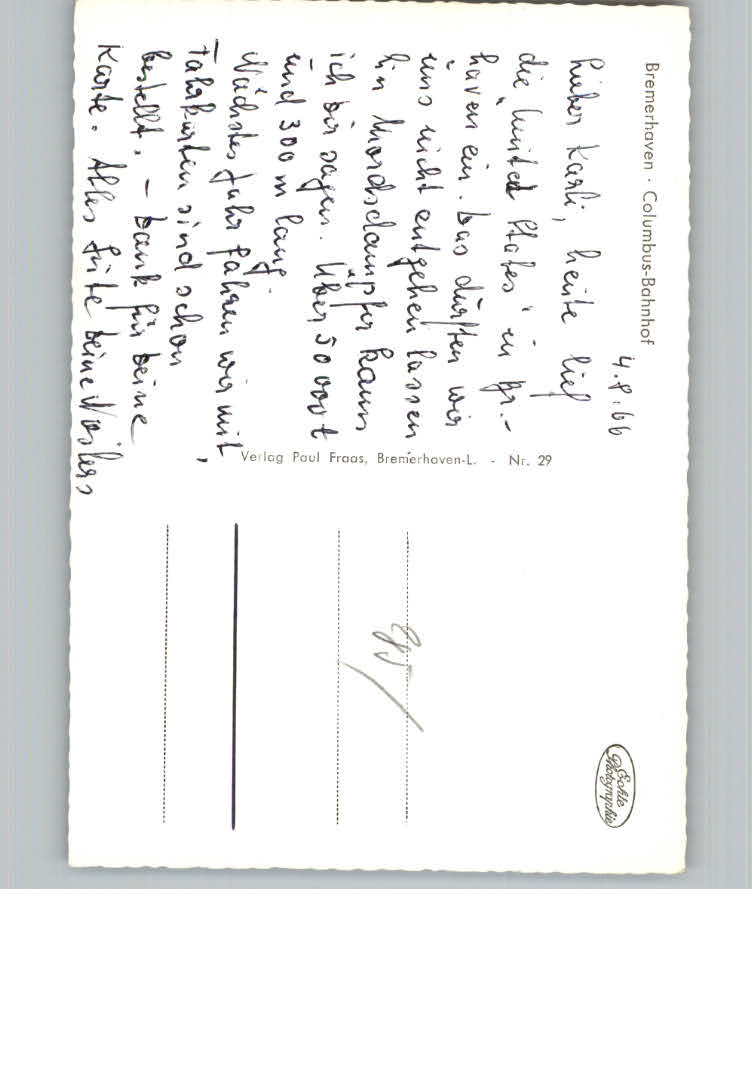 Bremerhaven · Columbus-Bahnhof
4.8.66
Lieber Karli, heute lief
die "United States" in Br.-
haven ein. Das dürften wir
uns nicht entgehen lassen
Ein Mordsdampfer kann
ich dir sagen. Über 50 000 t
und 300 m lang.
Nächstes Jahr fahren wir mit,
Fahrkarten sind schon
bestellt. – Dank für Deine
Karte. Alles Gute Deine
Verlag Paul Fraas, Bremerhaven-L. - Nr. 29
Echte
Photographie